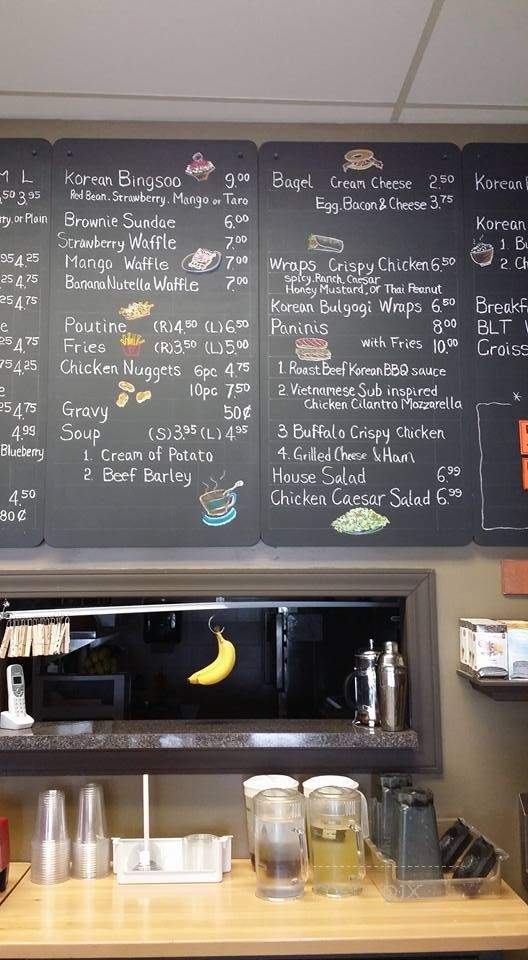 M L
3.95
or Plain
4.25
4.75
4.75
4.75
4.25
4.75
4.99
Blueberry
4.50
80¢
Korean Bingsoo 9.00
Red Bean. Strawberry. Mango or Taro
Brownie Sundae 6.00
Strawberry Waffle 7.00
Mango Waffle 7.00
Banana Nutella Waffle 7.00
Poutine (R)4.50 (L)6.50
Fries (R)3.50 (L)5.00
Chicken Nuggets 6pc 4.75
10pc 7.50
Gravy 50¢
Soup (S)3.95 (L)4.95
1. Cream of Potato
2. Beef Barley
Bagel Cream Cheese 2.50
Egg. Bacon & Cheese 3.75
Wraps Crispy Chicken 6.50
Spicy, Ranch, Caesar
Honey Mustard, Or Thai Peanut
Korean Bulgogi Wraps 6.50
Paninis 8.00
with Fries 10.00
1. Roast Beef Korean BBQ sauce
2. Vietnamese Sub inspired
Chicken Cilantro Mozzarella
3 Buffalo Crispy Chicken
4. Grilled Cheese & Ham
House Salad 6.99
Chicken Caesar Salad 6.99
Korean
Korean
1. Bu
2. Ch
Breakfa
BLT
Croiss
*